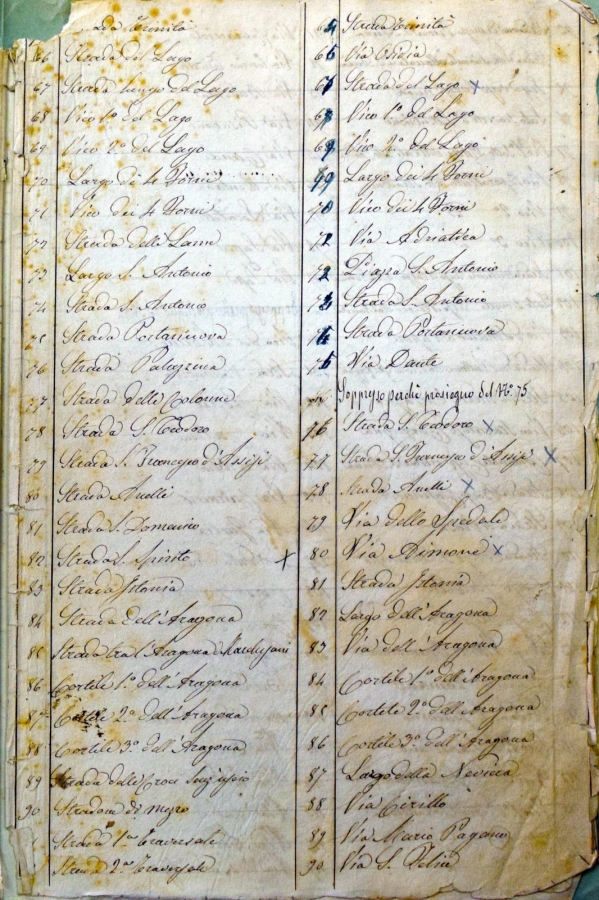 Strada Trinità
66 Strada del Lago
67 Strada lungo del Lago
68 Vico 1º del Lago
69 Vico 2º del Lago
70 Largo di 4 Forni
71 Vico dei 4 Forni
72 Strada delle Lame
73 Largo S. Antonio
74 Strada S. Antonio
75 Strada Portanuova
76 Strada Palazzina
77 Strada delle Colonne
78 Strada S. Teodoro
79 Strada S. Francesco d'Assisi
80 Strada Anelli
81 Strada S. Domenico
82 Strada S. Spirito x
83 Strada Istonia
84 Strada dell'Aragona
85 Strada tra l'Aragona
86 Cortile 1º dell'Aragona
87 Cortile 2º dell'Aragona
88 Cortile 3º dell'Aragona
89 Strada delle Croci
90 Stradone di mezzo
Strada 1ª Traversale
Strada 2ª Traversale
Strada Trinità
Via
Strada del Lago x
Vico 1º del Lago
Vico 2º del Lago
Largo dei 4 Forni
Vico dei 4 Forni
Via Adriatica
72 Piazza S. Antonio
73 Strada S. Antonio
74 Strada Portanuova
75 Via Dante
Soppresso perchè prosieguo del Nº 75
76 Strada S. Teodoro x
77 Strada S. Francesco d'Assisi x
78 Strada Anelli x
79 Via dello Spedale
80 Via Aimone x
81 Strada Istonia
82 Largo dell'Aragona
83 Via dell'Aragona
84 Cortile 1º dell'Aragona
85 Cortile 2º dell'Aragona
86 Cortile 3º dell'Aragona
87 Largo della Neviera
88 Via Cirillo
89 Via Mario Pagano
90 Via S. Felice